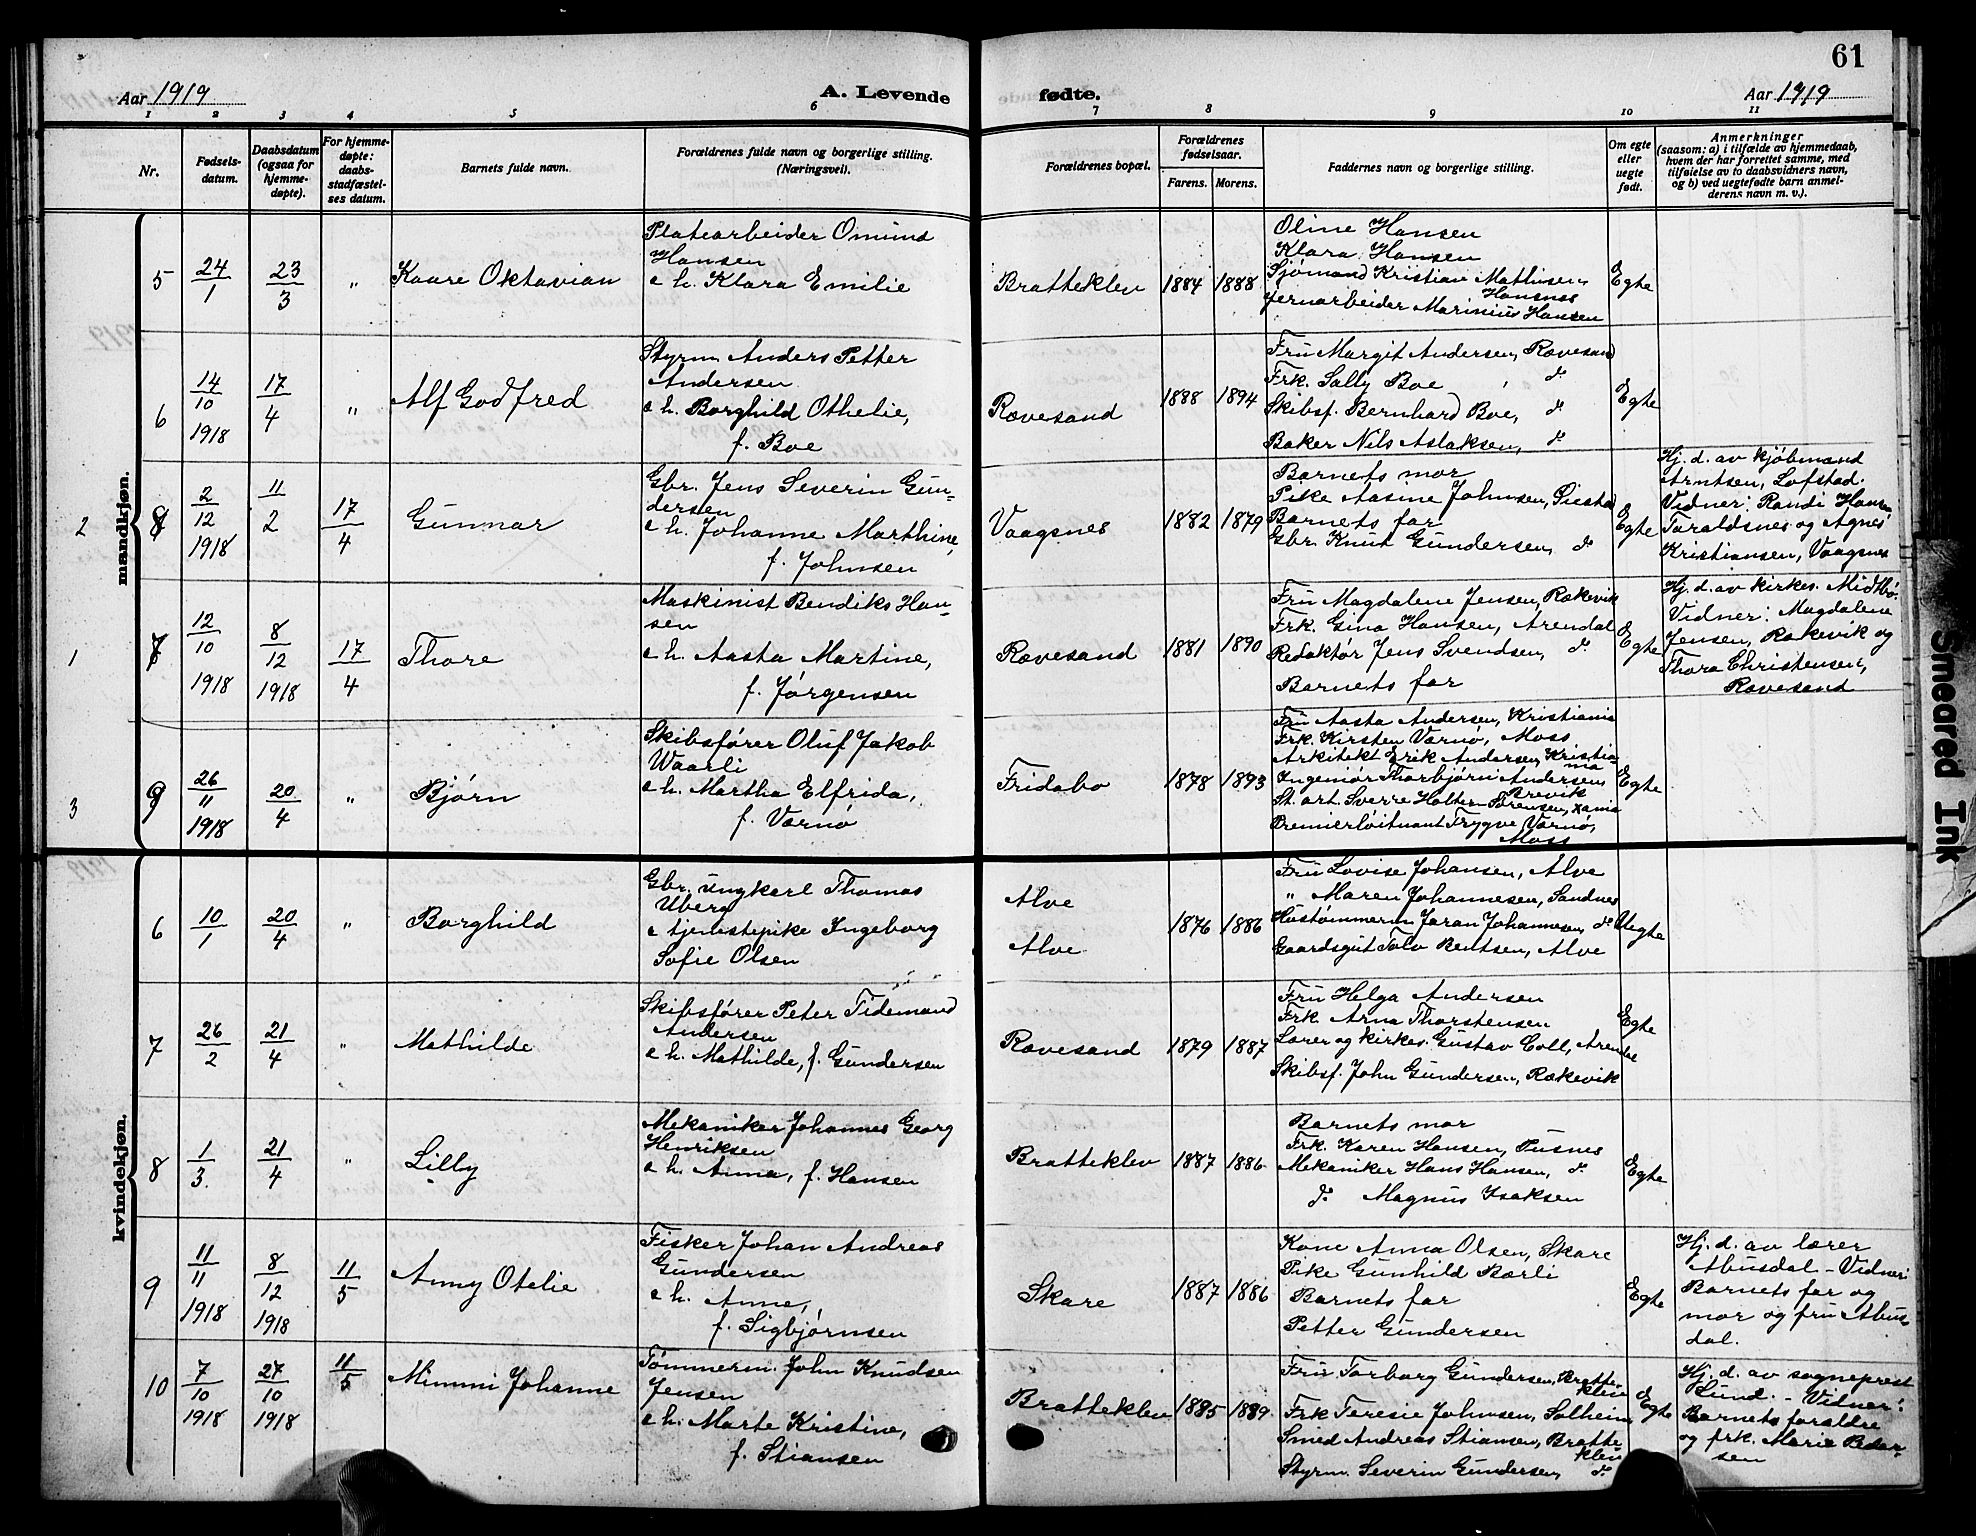 61
Aar 1919
A. Levende
fødte.
Aar 1919
1 2 3 4 5 6 7 8 9 10 11
Nr.
Fødsels-
datum.
Daabsdatum
(ogsaa for
hjemme-
døpte).
For hjemme-
døpte:
daabs-
stadfæstel-
ses datum.
Barnets fulde navn.
Forældrenes fulde navn og borgerlige stilling.
(Næringsvei).
Forældrenes bopæl.
Forældrenes
fødselsaar.
Farens. Morens.
Faddernes navn og borgerlige stilling.
Om egte
eller
uegte
født.
Anmerkninger
(saasom: a) i tilfælde av hjemmedaab,
hvem der har forrettet samme, med
tilføielse av to daabsvidners navn,
og b) ved uegtefødte barn anmel-
derens navn m. v.).
mandkjøn.
5
24/1
23/3
"
Kaare Oktavian
Platearbeider Omund
Hansen
e h. Klara Emilie
Bratteklev
1884
1888
Oline Hansen
Klara Hansen
Sjømand Kristian Mathisen,
Hansnes
Jernarbeider Marinius Hansen
Egte
6
14/10
1918
17/4
"
Alf Godfred
Styrm. Anders Petter
Andersen
e h. Borghild Othelie,
f. Boe
Rævesand
1888
1894
Fru Margit Andersen, Rævesand
Frk. Sally Boe, d.
Skibsf. Bernhard Boe, d.
Baker Nils Aslaksen, d.
Egte
2
8
2/12
1918
11/2
17/4
Gunnar
Gbr. Jens Severin Gun-
dersen
e h. Johanne Marthine,
f. Johnsen
Vaagsnes
1882
1879
Barnets mor
Pike Aasine Johnsen,
Barnets far
Gbr. Knut Gundersen, d.
Egte
Hj. d. av kjøbmand
Arntsen, Løfstad.
Vidner: Randi Hansen
Taraldsnes og Agnes
Kristiansen, Vaagsnes
1
7
12/10
1918
8/12
1918
17/4
Thore
Maskinist Bendiks Han-
sen
e h. Aasta Martine,
f. Jørgensen
Rævesand
1881
1890
Fru Magdalene Jensen, Rækevik
Frk. Gina Hansen, Arendal
Redaktør Jens Svendsen, d.
Barnets far
Egte
Hj. d. av kirkes. Midtbø.
Vidner: Magdalene
Jensen, Rækevik og
Thora Christensen,
Rævesand
3
9
26/11
1918
20/4
"
Bjørn
Skibsfører Oluf Jakob
Waarli
e h. Martha Elfrida,
f. Værnø
Fridabo
1878
1893
Fru Aasta Andersen, Kristiania
Frk. Kirsten Værnø, Moss
Arkitekt Erik Andersen, Kristia-
nia
Ingeniør Thorbjørn Andersen
Brevik
St. art. Sverre Holter-Sørensen, Xania
Premierløitnant Trygve Værnø,
Moss
Egte
kvindekjøn.
6
10/1
20/4
"
Borghild
Gbr. ungkarl Thomas
Uberg
e tjenestepike Ingeborg
Sofie Olsen
Alve
Alve
1876
1886
Fru Lovise Johansen, Alve
" Maren Johannesen, Sandnes
Hustømmerm. Jøran Johannesen, d.
Gaardsgut Tolv Bentsen, Alve
Uegte
7
26/2
21/4
"
Mathilde
Skibsfører Peter Tidemand
Andersen
e h. Mathilde, f. Gundersen
Rævesand
1879
1887
Fru Helga Andersen
Frk. Arna Thorstensen
Lærer og kirkes. Gustav Coll, Arendal
Skibsf. John Gundersen, Rækevik
Egte
8
1/3.
21/4
"
Lilly
Mekaniker Johannes Georg
Henriksen
e h. Anna, f. Hansen
Bratteklev
1887
1886
Barnets mor
Frk. Karen Hansen, Pusnes
Mekaniker Hans Hansen, d.
d. Magnus Isaksen
Egte
9
11/11
1918
8/12
1918
11/5
Anny Otelie
Fisker Johan Andreas
Gundersen
e h. Anne,
f. Sigbjørnsen
Skare
1887
1886
Kone Anna Olsen, Skare
Pike Gunhild Bærli
Barnets far
Petter Gundersen
Egte
Hj. d. av lærer
Abusdal - Vidner:
Barnets far og
mor og fru Abus-
dal.
10
7/10
1918
27/10
1918
11/5
Mimmi Johanne
Tømmerm. John Knudsen
Jensen
e h. Marte Kristine,
f. Stiansen
Bratteklev
1885
1889
Fru Torborg Gundersen, Bratte-
klev
Frk Teresie Johnsen, Solheim
Smed Andreas Stiansen, Bratte-
klev
Styrm. Severin Gundersen, d.
Egte
Hj. d. av sogneprest
Lund. - Vidner:
Barnets forældre
og frk. Marie Peder-
sen
Smeared Ink